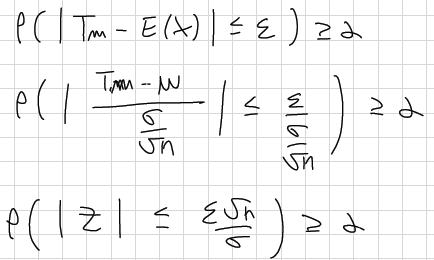 P( | Tm - E(X) | ≤ ε ) ≥ α
P( | (Tm - μ) / (σ/√n) | ≤ ε / (σ/√n) ) ≥ α
P( | Z | ≤ ε√n / σ ) ≥ α